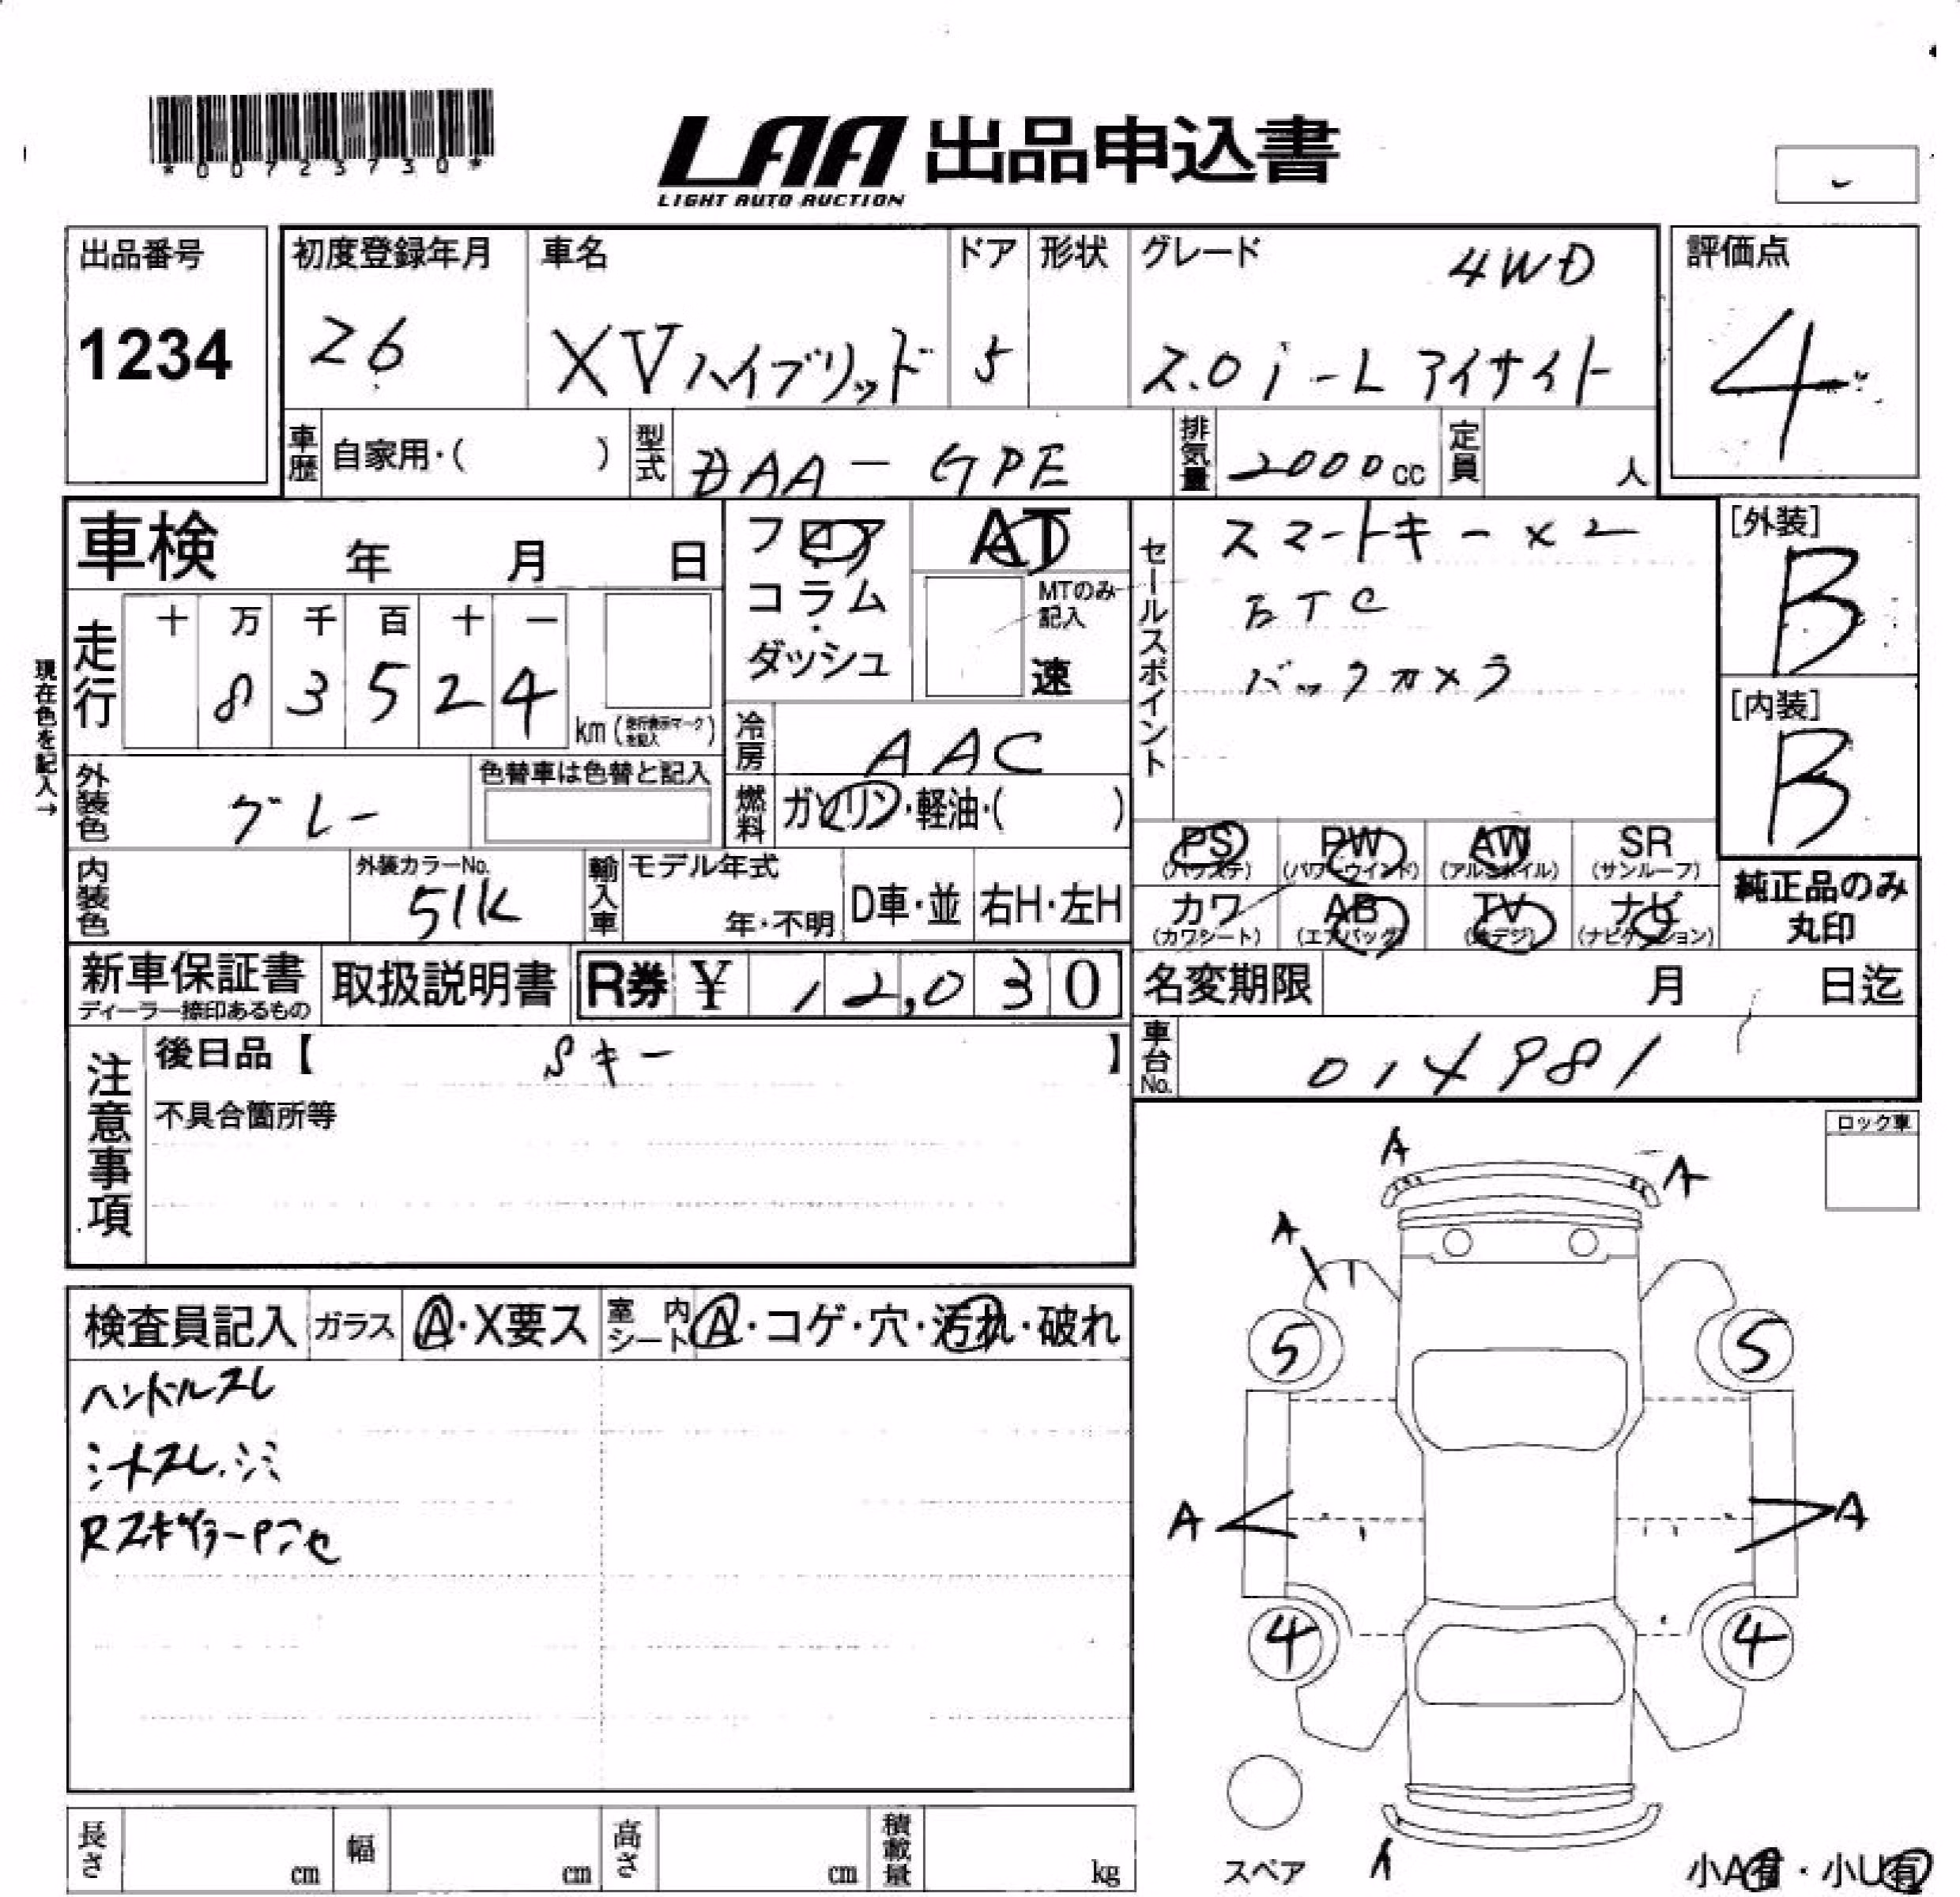 *00725730*
LAA 出品申込書
LIGHT AUTO AUCTION
出品番号
1234
初度登録年月
26
車名
XVハイブリッド
ドア
5
形状
グレード
4WD
2.0i-L アイサイト
評価点
4
車歴
自家用・( )
型式
DAA-GPE
排気量
2000cc
定員
人
車検 年 月 日
フロア
コラム
ダッシュ
AT
MTのみ
記入
速
セールスポイント
スマートキー×2
ETC
バックカメラ
[外装]
B
[内装]
B
現在色を記入→
走行
十 万 千 百 十 一
8 3 5 2 4
km (走行表示マークを記入)
冷房
AAC
外装色
グレー
色替車は色替と記入
燃料
ガソリン・軽油・( )
PS
(パワステ)
PW
(パワーウインド)
AW
(アルミホイル)
SR
(サンルーフ)
カワ
(カワシート)
AB
(エアバッグ)
TV
(地デジ)
ナビ
(ナビゲーション)
純正品のみ
丸印
内装色
外装カラーNo.
51K
輸入車
モデル年式
年・不明
D車・並
右H・左H
新車保証書
ディーラー捺印あるもの
取扱説明書
R券 ¥ 12,030
名変期限 月 日迄
車台No.
014981
注意事項
後日品【 Sキー 】
不具合箇所等
ロック車
A
A
A
5
5
A
A
4
4
スペア
小A有・小U有
検査員記入
ガラス
A・X要ス
室内シート
A・コゲ・穴・汚れ・破れ
ハンドルスレ
シートスレ.シミ
長さ cm
幅 cm
高さ cm
積載量 kg